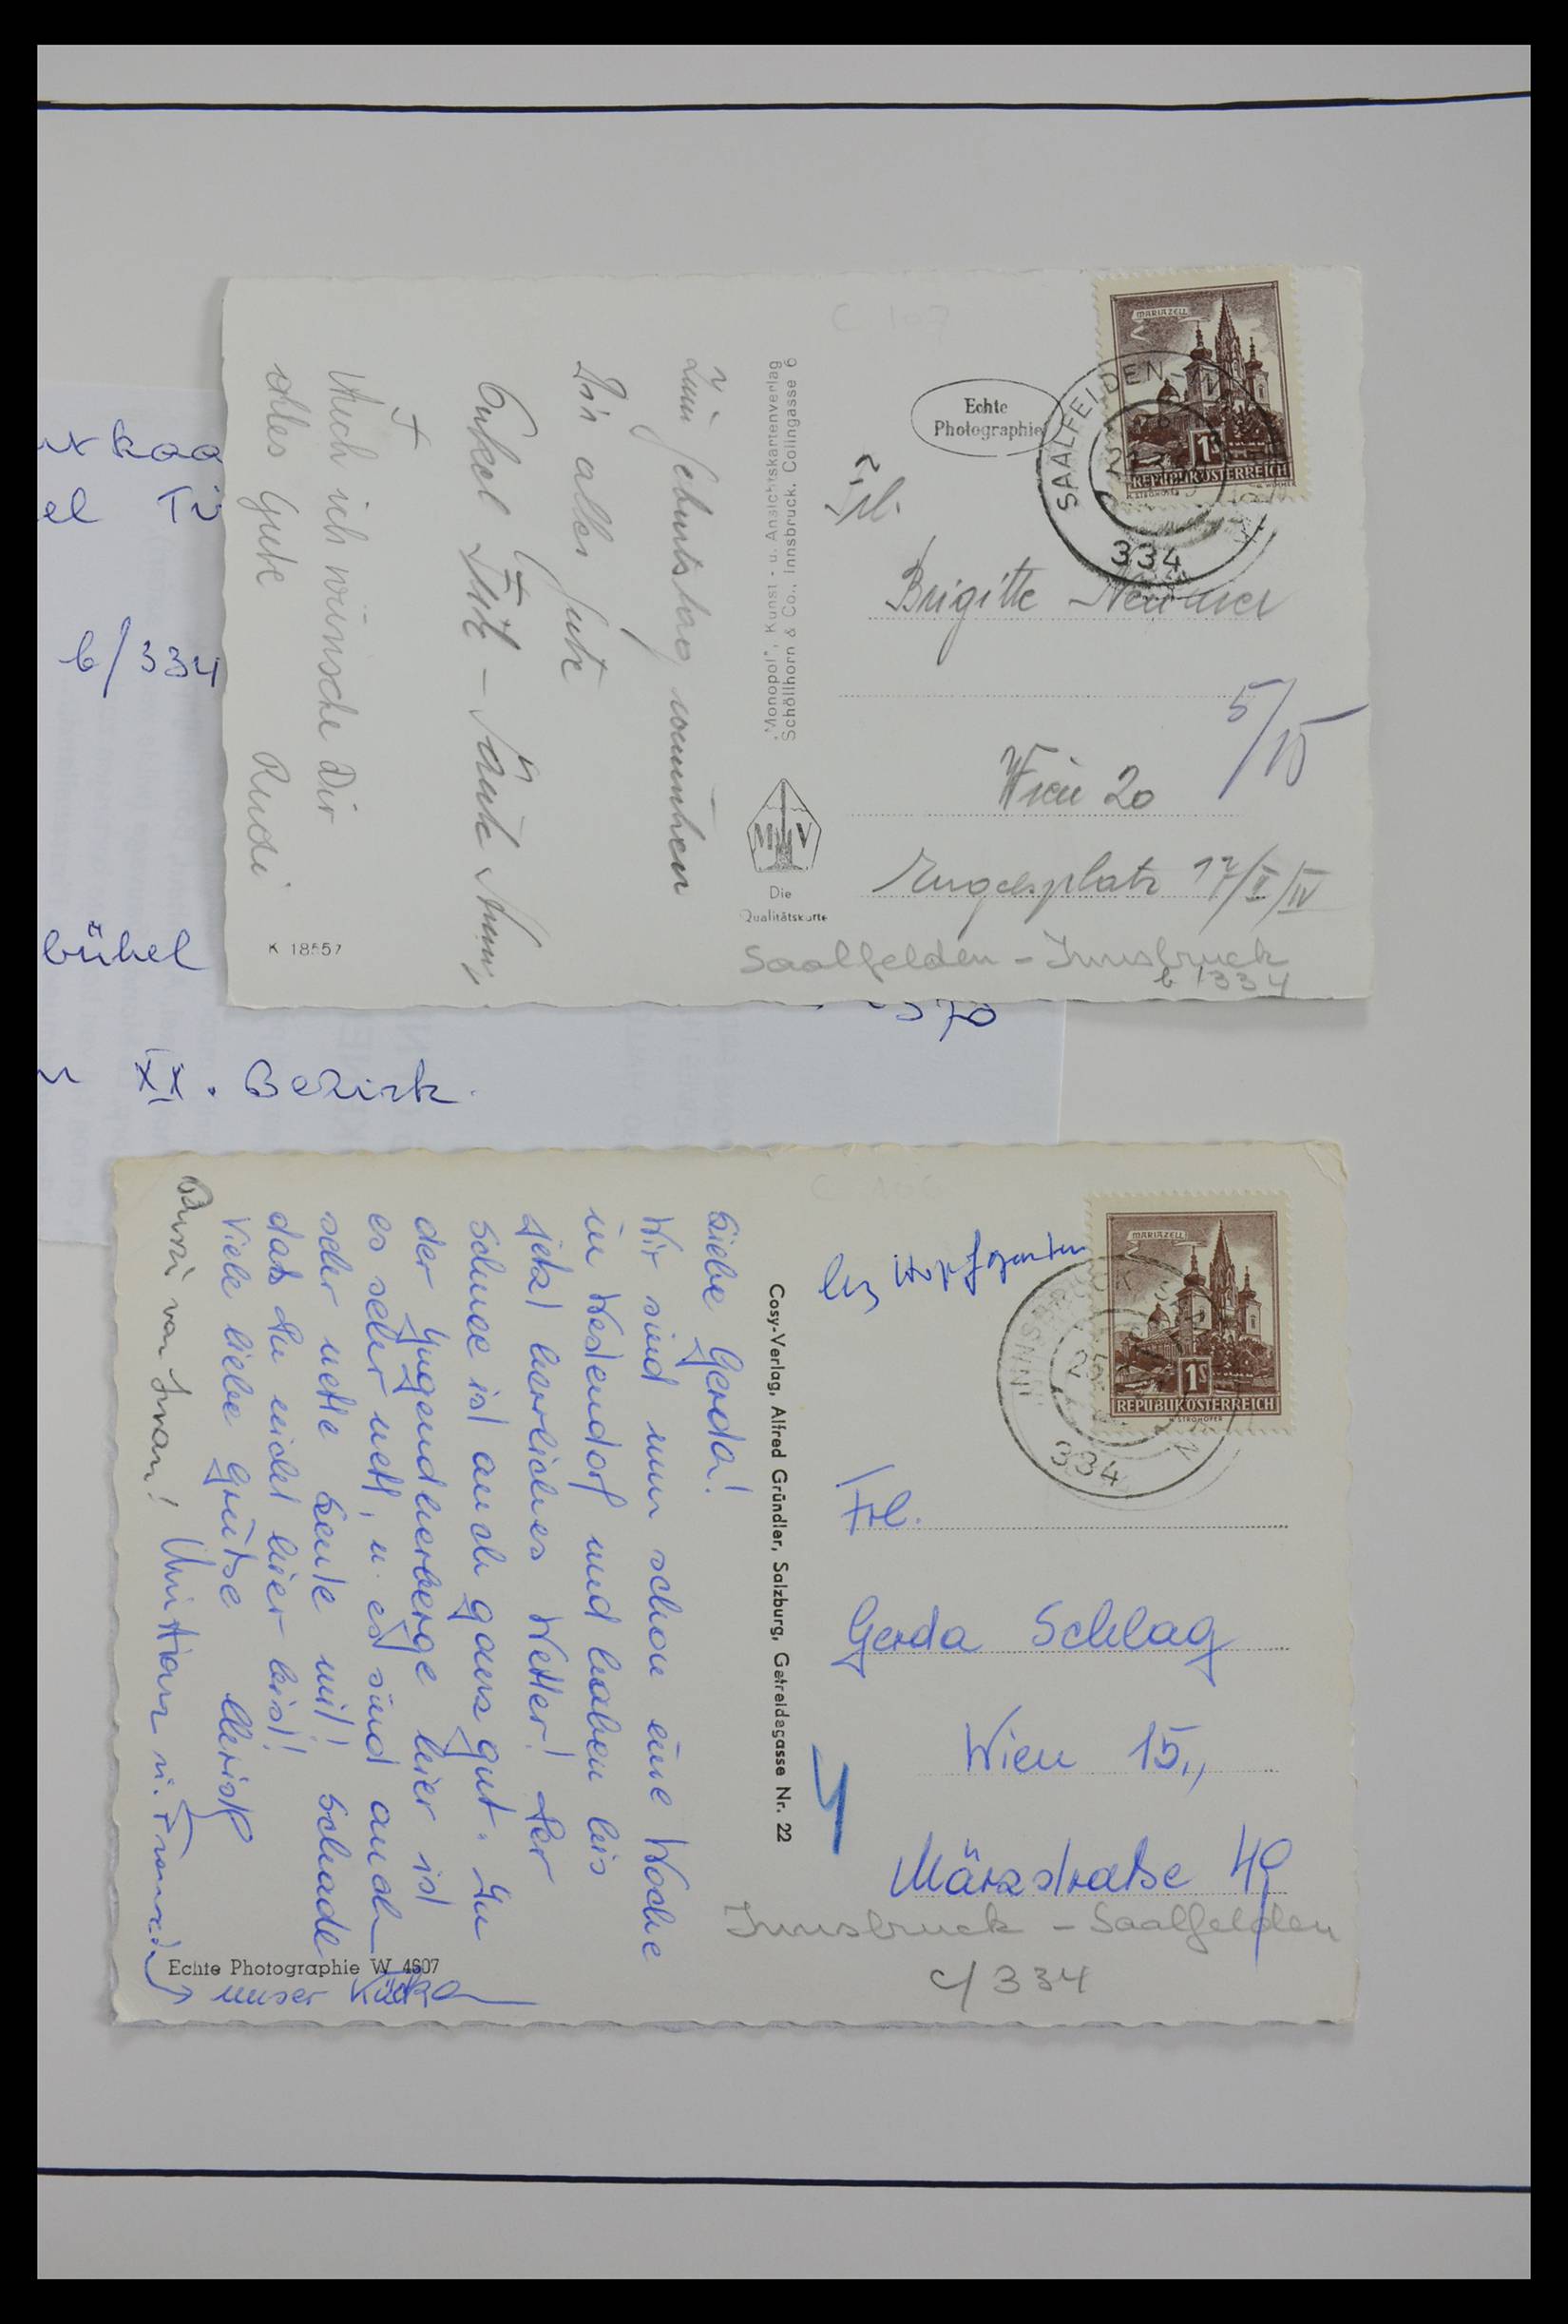 el
b/334
bühel
XX. Bezirk.
MARIAZELL
1S
REPUBLIK ÖSTERREICH
SAALFELDEN
334
Echte
Photographie
Frl.
Brigitte
5/15
Wien 20
Engelsplatz
Saalfelden - Innsbruck
b/334
"Monopol", Kunst- u. Ansichtskartenverlag
Schöllhorn & Co., Innsbruck, Colingasse 6
M V
Die
Qualitätskarte
Zum Geburtstag wünschen
Dir alles Gute
Onkel
Auch ich wünsche Dir
alles Gute Rudi
K 18557
MARIAZELL
1S
REPUBLIK ÖSTERREICH
INNSBRUCK
334
Hopfgarten
Frl.
Gerda Schlag
Wien 15.,
Märzstraße 49
4
Innsbruck - Saalfelden
c/334
Cosy-Verlag, Alfred Gründler, Salzburg, Getreidegasse Nr. 22
Liebe Gerda!
Wir sind nun schon eine Woche
in Westendorf und haben bis
jetzt herrliches Wetter! Der
Schnee ist auch ganz gut. In
der Jugendherberge hier ist
es sehr nett, u. es sind auch
sehr nette Leute mit! Schade
daß du nicht hier bist!
Viele liebe Grüße Christl
Echte Photographie W 4607
unser